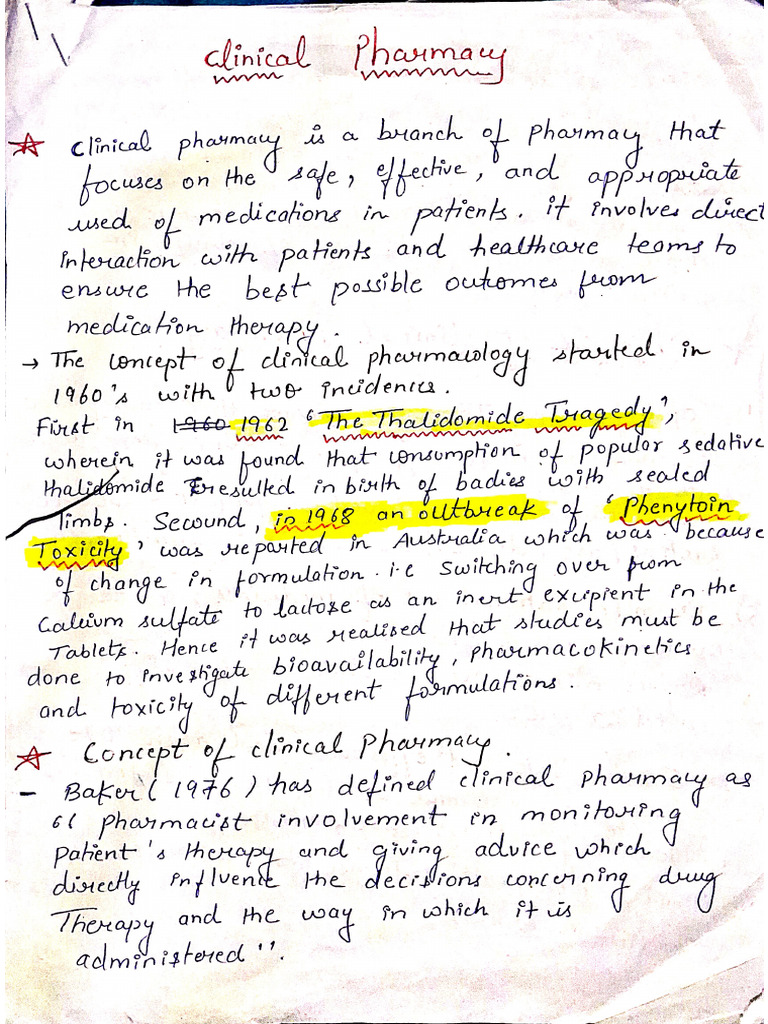 Clinical Pharmacy
Clinical pharmacy is a branch of Pharmay that
focuses on the safe, effective, and appropriate
used of medications in patients. it involves direct
interaction with patients and healthcare teams to
ensure the best possible outcomes from
medication therapy.
→ The concept of clinical pharmacology started in
1960's with two incidences.
First in 1960 1962 'The Thalidomide Tragedy',
wherein it was found that consumption of popular sedative
thalidomide resulted in birth of badies with sealed
limbs. Secound, in 1968 an outbreak of 'Phenytoin
Toxicity' was reported in Australia which was because
of change in formulation. i.e Switching over from
Calcium sulfate to lactose as an inert excipient in the
Tablets. Hence it was realised that studies must be
done to investigate bioavailability, pharmacokinetics
and toxicity of different formulations.
Concept of clinical Pharmacy.
- Baker (1976) has defined clinical pharmacy as
" pharmacist involvement in monitoring
patient's therapy and giving advice which
directly influence the decisions concerning drug
Therapy and the way in which it is
administered".